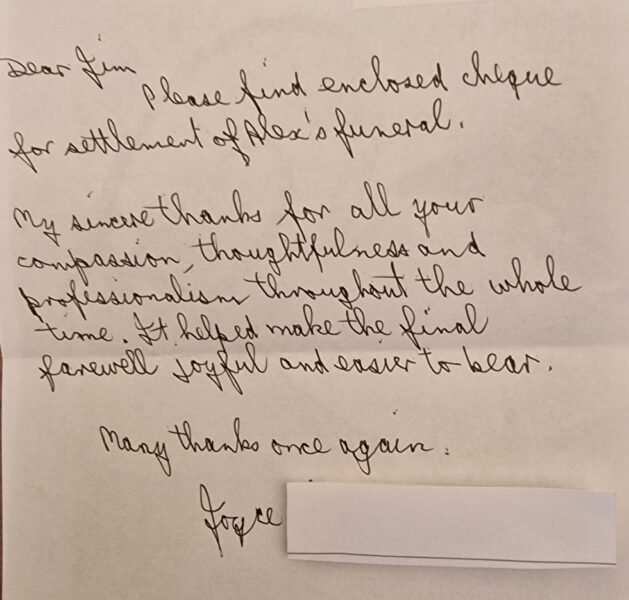 Dear Jim
Please find enclosed cheque
for settlement of Alex's funeral.
My sincere thanks for all your
compassion, thoughtfulness and
professionalism throughout the whole
time. It helped make the final
farewell joyful and easier to bear.
Many thanks once again.
Joyce